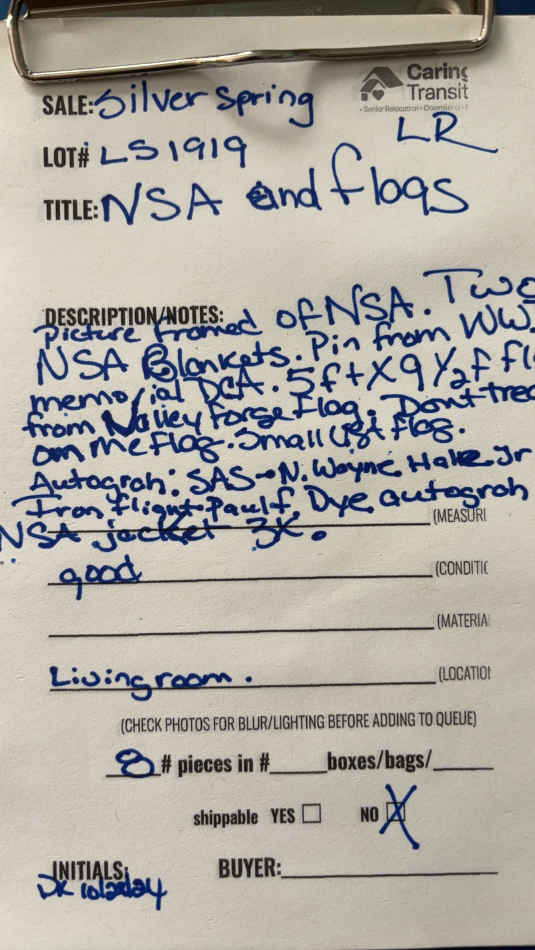 Caring
Transit
SALE: Silver Spring
LR
LOT# LS1919
TITLE: NSA and flags
DESCRIPTION/NOTES:
Picture framed of NSA. Two
NSA Blankets. Pin from WW
memorial DCA. 5ft X 9 1/2 f fl
from Valley Forge Flag. Dont tred
on me flag. Small
flag.
Autogroh: SAS - N. Wayne Hale Jr
Iran flight-Paul F. Dye autogroh
(MEASURE
NSA jacket 3X.
good
(CONDITIO
(MATERIA
Livingroom.
(LOCATION
(CHECK PHOTOS FOR BLUR/LIGHTING BEFORE ADDING TO QUEUE)
8 # pieces in #_____boxes/bags/_____
shippable YES ☐ NO ☒
INITIALS: BUYER:
DK 10/22/24